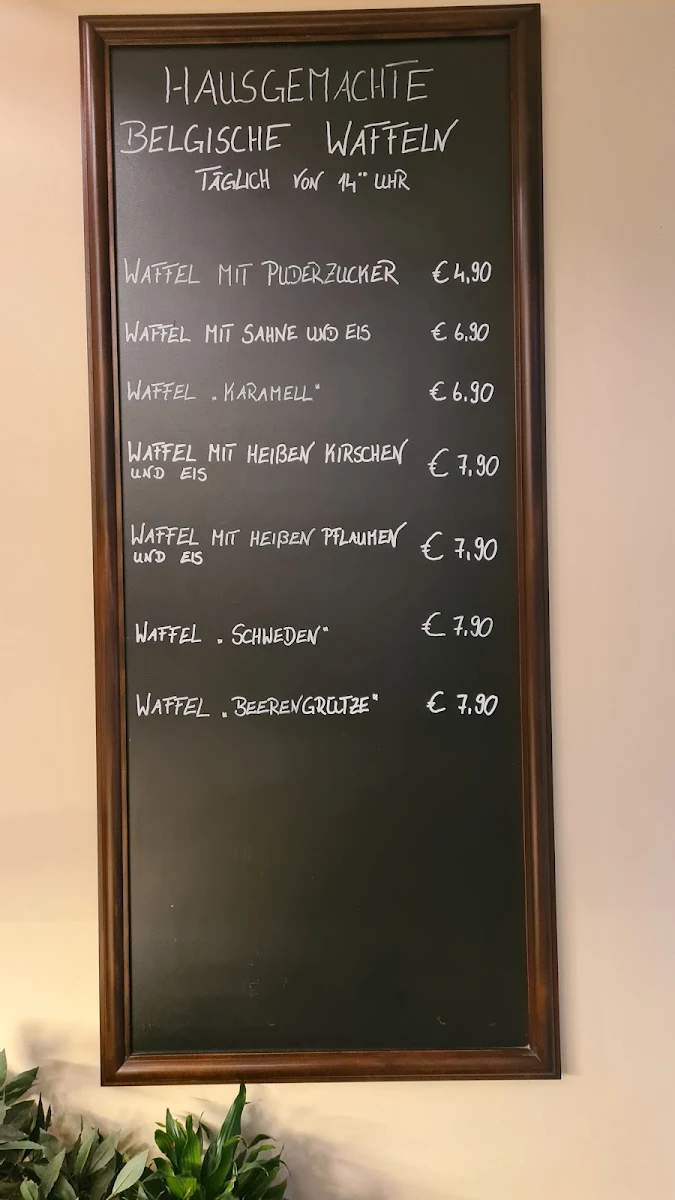 HAUSGEMACHTE
BELGISCHE WAFFELN
TÄGLICH VON 14°° UHR
WAFFEL MIT PUDERZUCKER € 4,90
WAFFEL MIT SAHNE UND EIS € 6,90
WAFFEL „KARAMELL“ € 6,90
WAFFEL MIT HEIßEN KIRSCHEN € 7,90
UND EIS
WAFFEL MIT HEIßEN PFLAUMEN € 7,90
UND EIS
WAFFEL „SCHWEDEN“ € 7,90
WAFFEL „BEERENGRÜTZE“ € 7,90